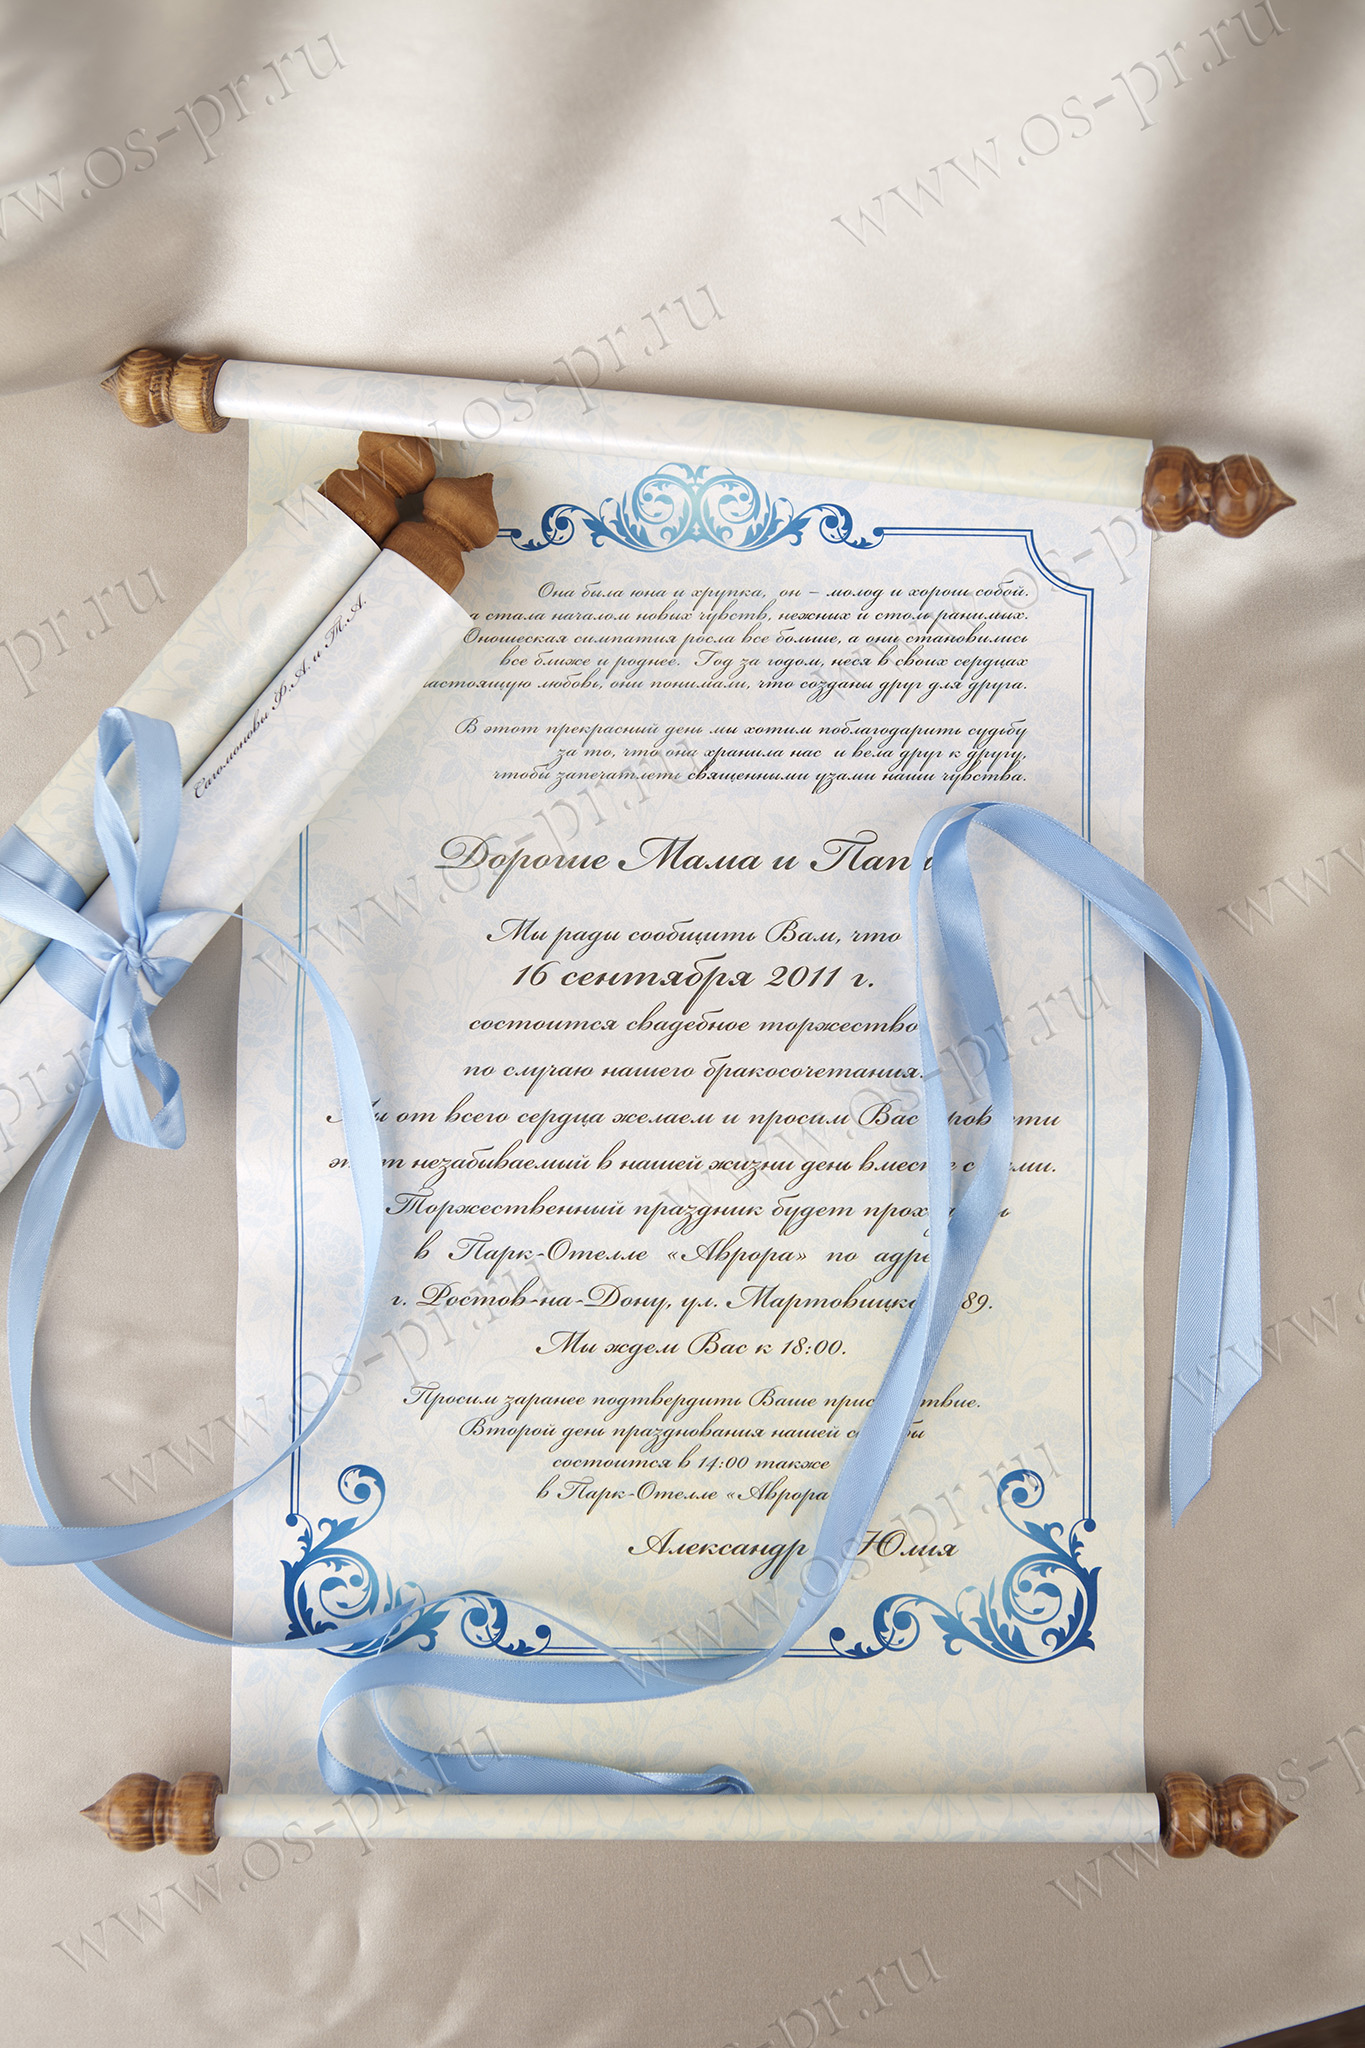 Она была юна и хрупка, он – молод и хорош собой.
стала началом новых чувств, нежных и столь ранимых.
симпатия росла все больше, а они становились
все ближе и роднее. Год за годом, неся в своих сердцах
любовь, они понимали, что созданы друг для друга.
В этот прекрасный день мы хотим поблагодарить судьбу
за то, что она хранила нас и вела друг к другу,
чтобы запечатлеть священными узами наши чувства.
Дорогие Мама и Папа
Мы рады сообщить Вам, что
16 сентября 2011 г.
состоится свадебное торжество
по случаю нашего бракосочетания.
Мы от всего сердца желаем и просим Вас провести
этот незабываемый в нашей жизни день вместе с нами.
Торжественный праздник будет проходить
в Парк-Отелле «Аврора» по
г. Ростов-на-Дону, ул. 89.
Мы ждем Вас к 18:00.
Просим заранее подтвердить Ваше присутствие.
Второй день празднования нашей свадьбы
состоится в 14:00 также
в Парк-Отелле «Аврора
Александр Юлия
Сагомоновы Ф.А. и Т.А.
www.os-pr.ru